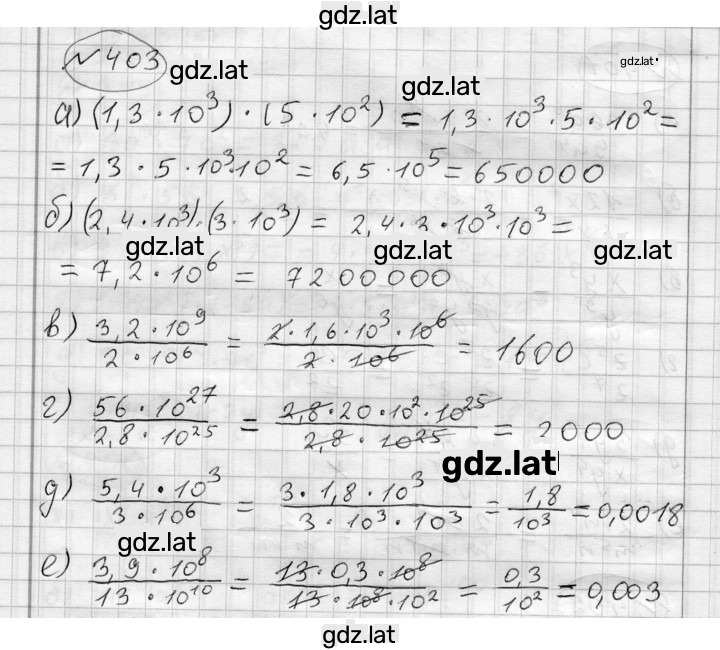 gdz.lat
№ 403
gdz.lat
gdz.lat
gdz.lat
а) (1,3 · 10³) · (5 · 10²) = 1,3 · 10³ · 5 · 10² =
= 1,3 · 5 · 10³·10² = 6,5 · 10⁵ = 650000
б) (2,4 · 10³)·(3 · 10³) = 2,4 · 3 · 10³ · 10³ =
gdz.lat
gdz.lat
gdz.lat
= 7,2 · 10⁶ = 7200000
в) (3,2 · 10⁹)/(2 · 10⁶) = (2 · 1,6 · 10³ · 10⁶)/(2 · 10⁶) = 1600
г) (56 · 10²⁷)/(2,8 · 10²⁵) = (2,8 · 20 · 10² · 10²⁵)/(2,8 · 10²⁵) = 2000
gdz.lat
д) (5,4 · 10³)/(3 · 10⁶) = (3 · 1,8 · 10³)/(3 · 10³ · 10³) = 1,8/10³ = 0,0018
gdz.lat
е) (3,9 · 10⁸)/(13 · 10¹⁰) = (13 · 0,3 · 10⁸)/(13 · 10⁸ · 10²) = 0,3/10² = 0,003
gdz.lat